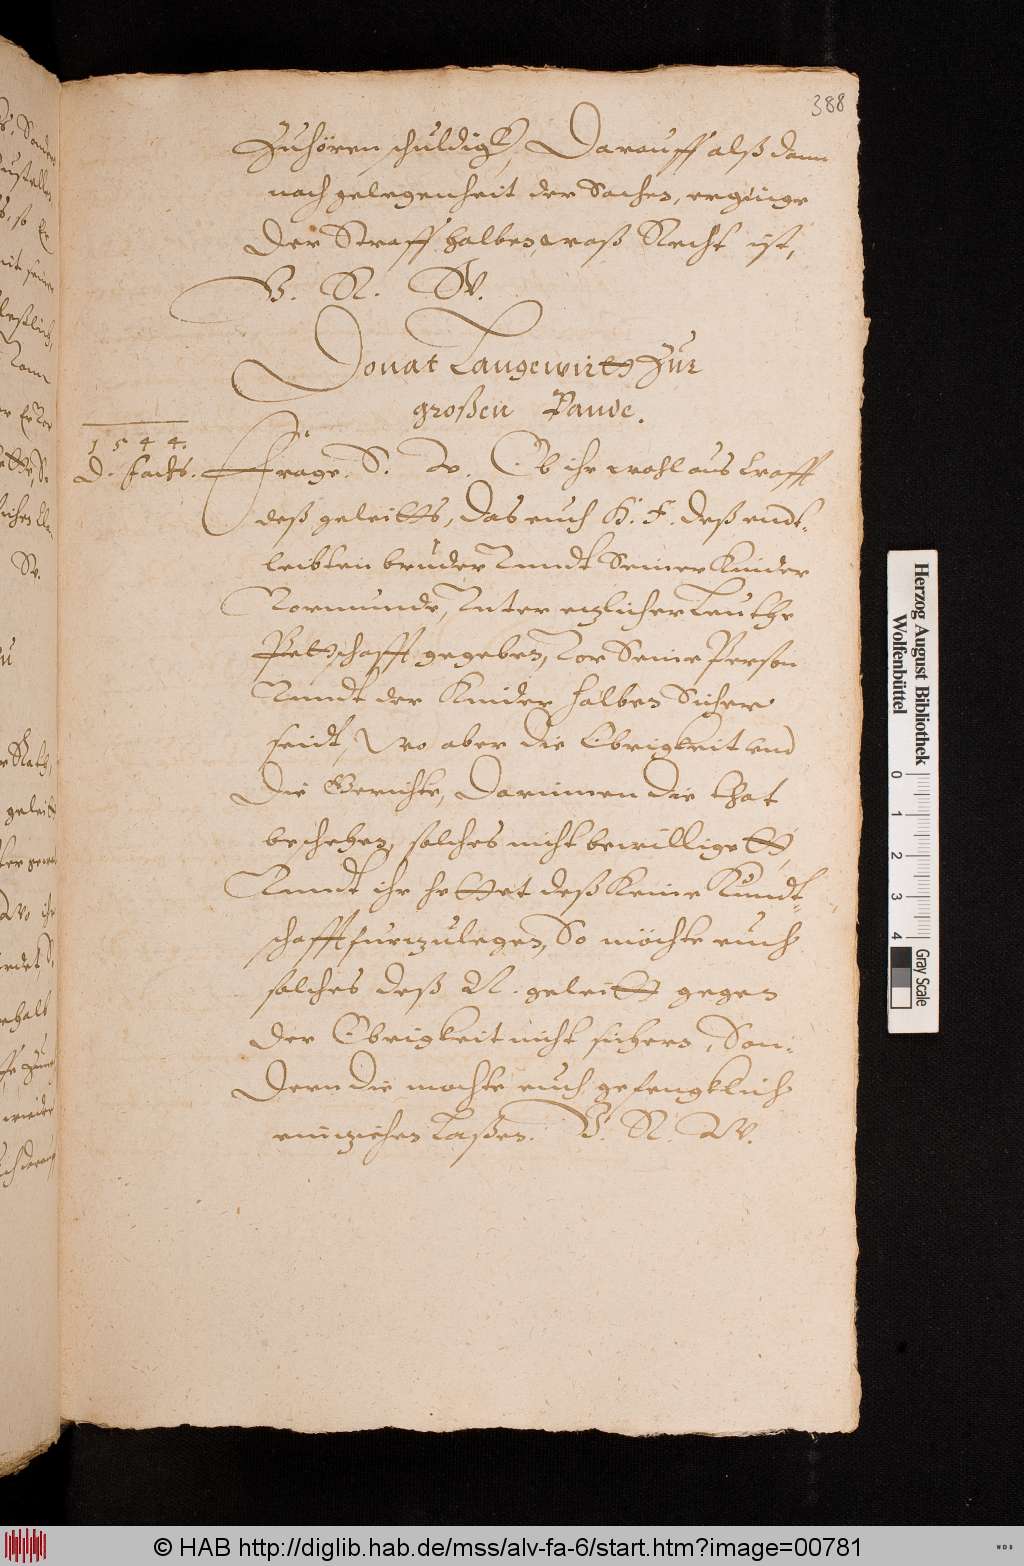 388
Zuhören schuldigk, Darauff alß dann
nach gelegenheit der Sachen, erginge
Der Straff halben, waß Recht ist,
V. R. W.
Donat Langewirtt Zur
großen Pawde.
1544.
D. Fachs. Frage. S. W. Ob ihr wohl aus krafft
deß geleitts, das euch H. F. deß endt-
leibten bruder Vnndt Seiner Kinder
Vormunde, Vnter etzlicher Leuthe
Petschafft gegeben, Vor Seine Person
Vnndt der Kinder halben Sicher
seidt, Wo aber die Obrigkeit vnd
Die Gerichte, Darinnen die that
beschehen, solches nicht bewilligett,
Vnndt ihr hettet deß keine Kundt-
schafft furzulegen, So möchte euch
solches deß N. geleitt gegen
der Obrigkeit nicht sichern, Son-
dern die mochte euch gefengklich
einziehen Laßen. V. R. W.
Herzog August Bibliothek
Wolfenbüttel
0 1 2 3 4
Gray Scale
© HAB http://diglib.hab.de/mss/alv-fa-6/start.htm?image=00781
WDB